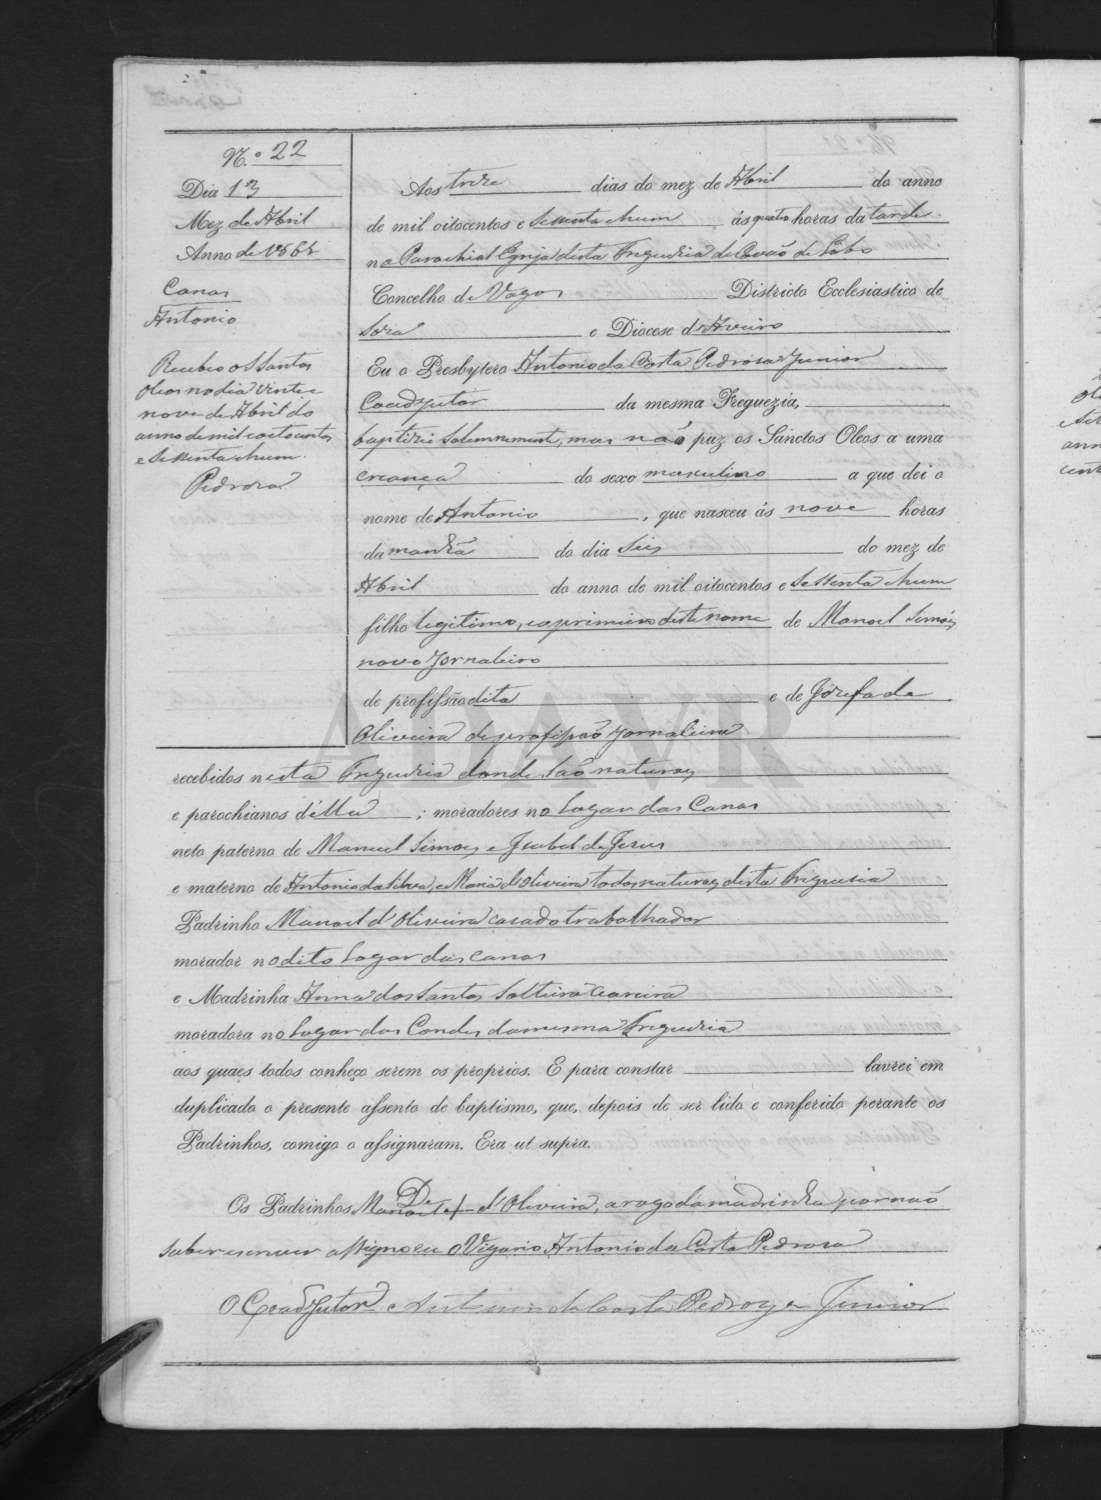 N.º 22
Dia 13
Mez de Abril
Anno de 1861
Canas
Antonio
Recebeo os Santos
Oleos no dia vinte e
nove de Abril do
anno de mil e oitocentos
e sessenta e hum.
Pedroza
Aos treze dias do mez de Abril do anno
de mil oitocentos e sessenta e hum, ás quatro horas da tarde
na Parochial Egreja desta Freguezia de Covão do Lobo
Concelho de Vagos Districto Ecclesiastico de
Soza e Diocese d'Aveiro
Eu o Presbytero Antonio da Costa Pedroza Junior
Coadjutor da mesma Freguezia,
baptizei solemnemente, mas não puz os Sanctos Oleos a uma
creança do sexo masculino a que dei o
nome de Antonio, que nasceu ás nove horas
da manhã do dia seis do mez de
Abril do anno de mil oitocentos e sessenta e hum
filho legitimo, e o primeiro deste nome de Manoel Simões
novo Jornaleiro
de profissão dita e de Jozefa de
Oliveira de profissão Jornaleira
recebidos nesta Freguezia donde são naturaes
e parochianos d'ella; moradores no Lugar das Canas
neto paterno de Manuel Simoes e Izabel de Jesus
e materno de Antonio da Silva, e Maria d'Oliveira todos naturaes desta Freguesia
Padrinho Manoel d'Oliveira casado trabalhador
morador no dito Lugar das Canas
e Madrinha Anna dos Santos Solteira
moradora no Lugar das Condes da mesma Freguezia
aos quaes todos conheço serem os proprios. E para constar lavrei em
duplicado o presente assento de baptismo, que, depois de ser lido e conferido perante os
Padrinhos, comigo o assignaram. Era ut supra.
Os Padrinhos Manoel + De d'Oliveira, a rogo da madrinha por não
saber escrever assigno eu o Vigario Antonio da Costa Pedroza
O Coadjutor Antonio da Costa Pedroza Junior
ADAVR